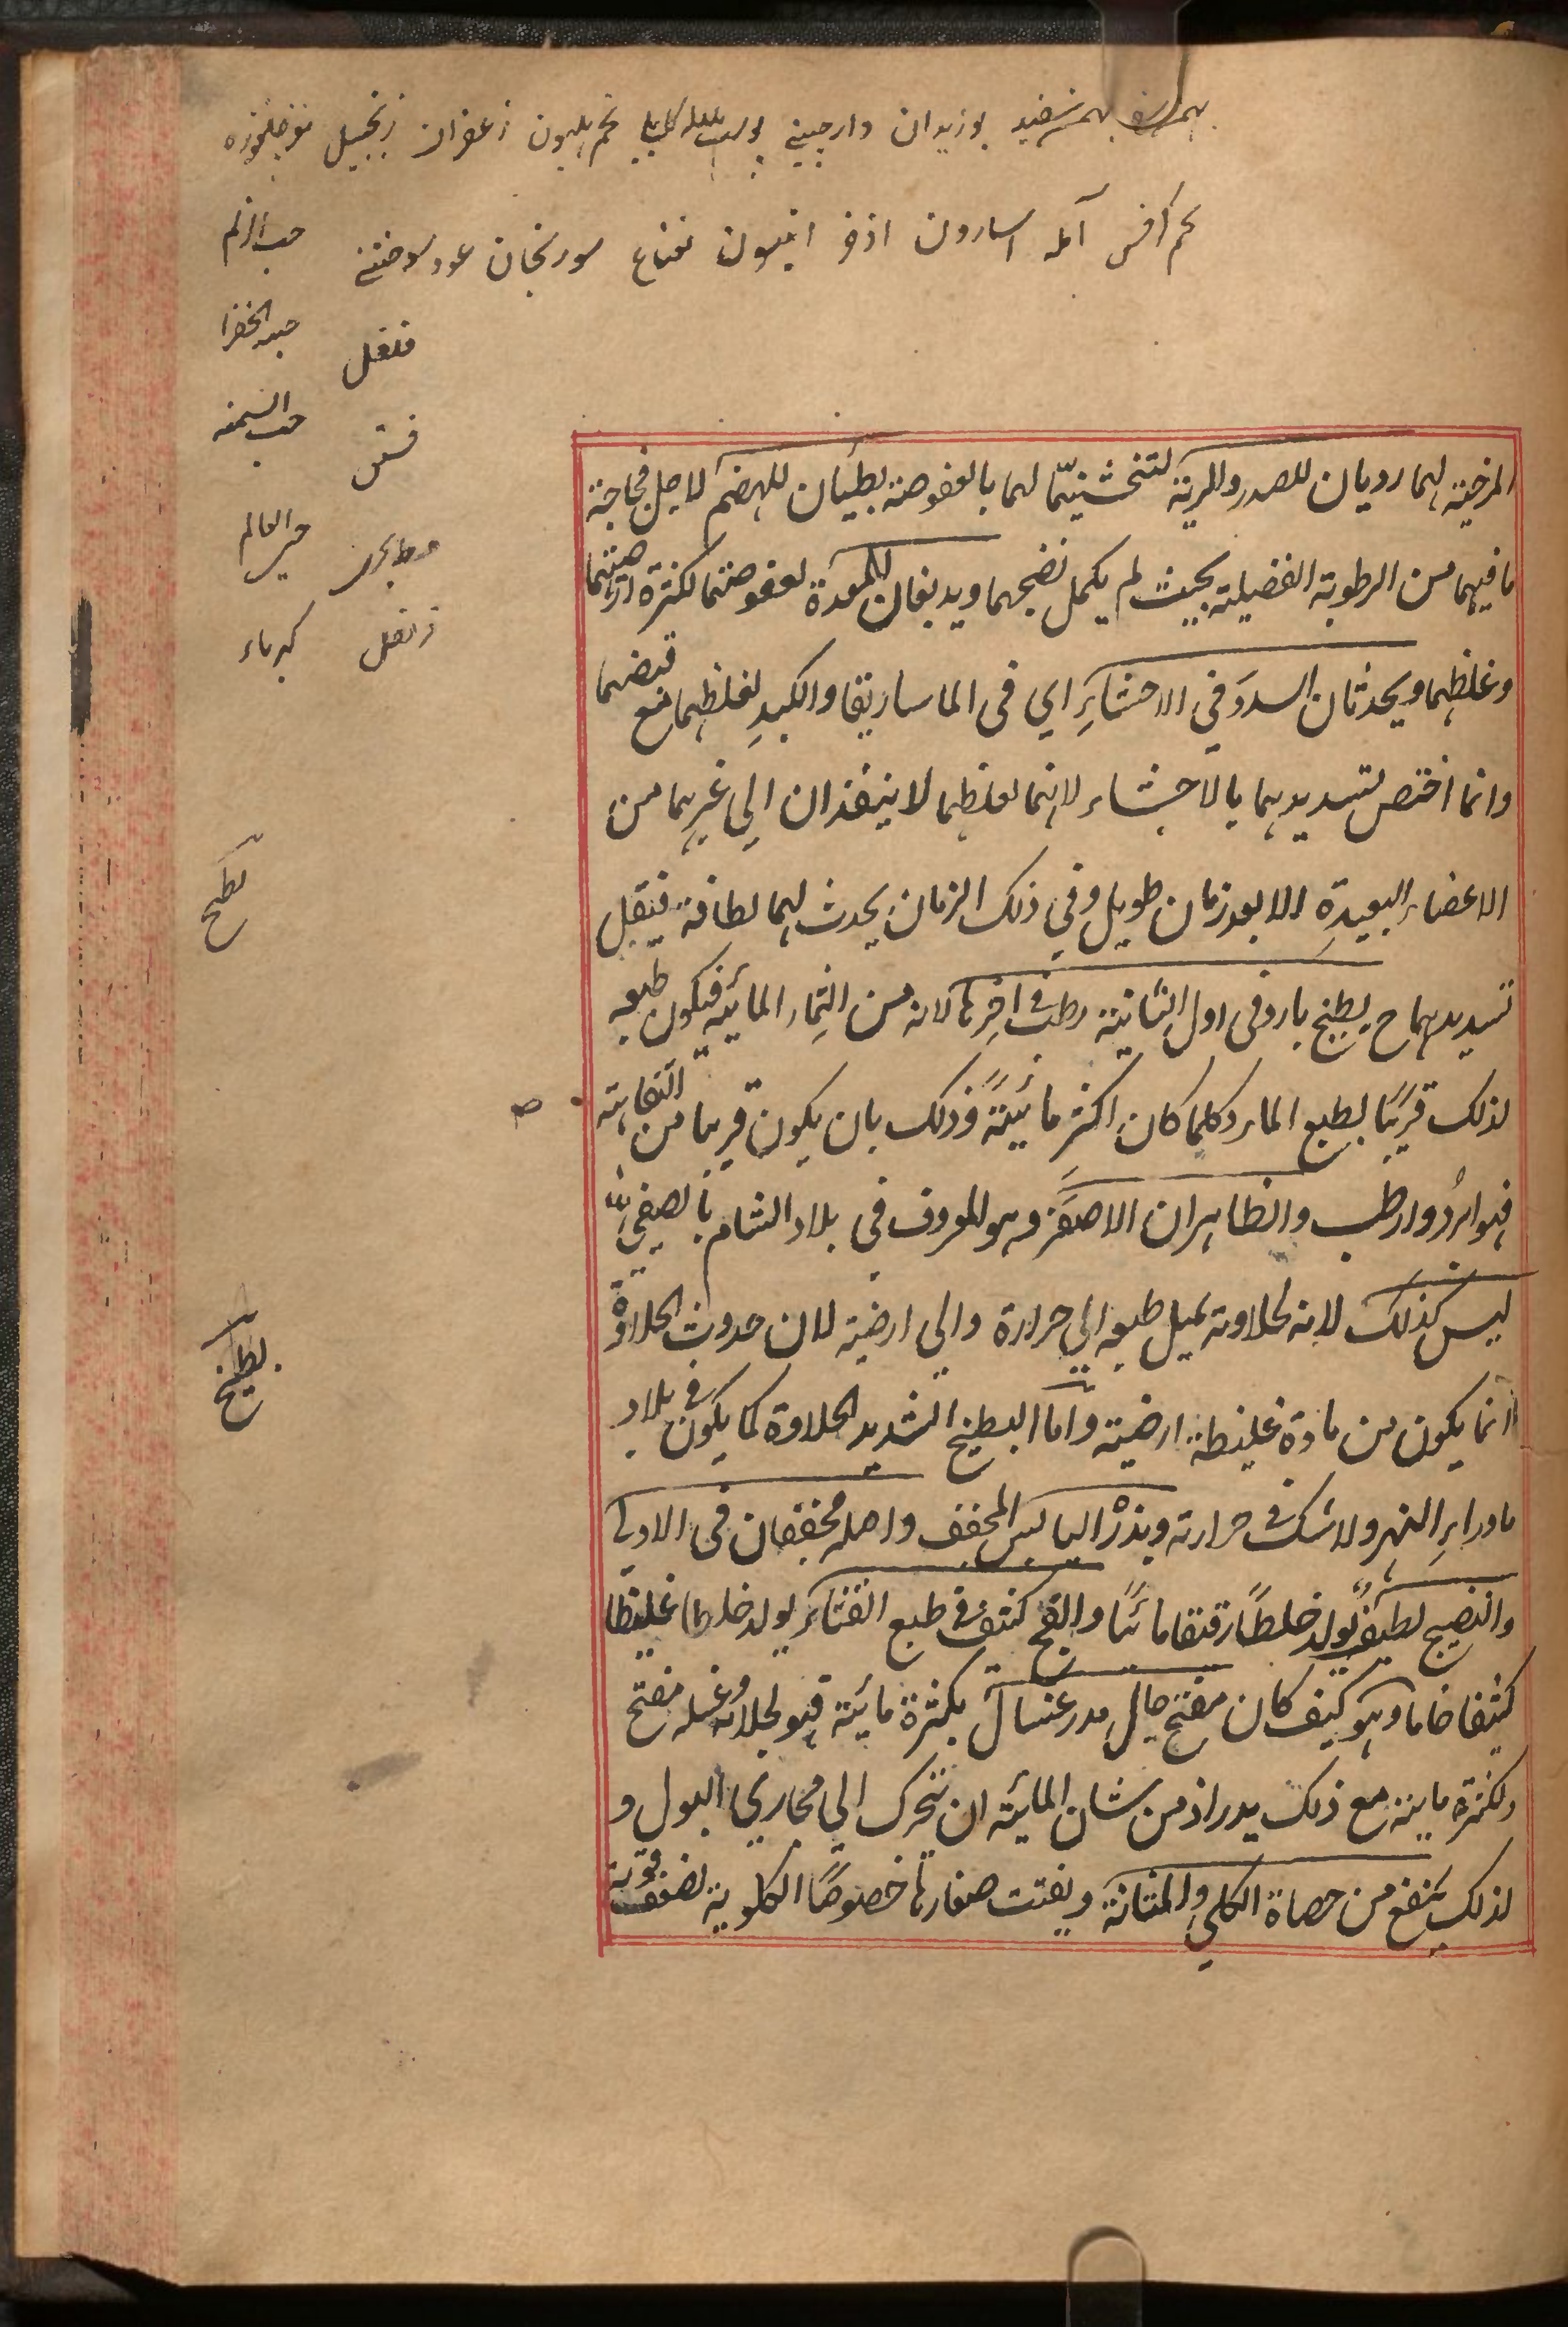 بهمن سفید بوزیدان دارچینی تخم هلیون زعفران زنجبیل مغز چلغوزه
تخم کرفس آمله اسارون اذخر انیسون نعناع سورنجان عود سوختنی
حب الزلم
حبه الخضرا
فلفل
حب السمنه
فستق
حی العالم
قرنفل
کهرباء
المرخية لهما رديان للصدر والرية لتخشينهما لهما بالعفوصة بطيئان للهضم لاجل فجاجة
ما فيهما من الرطوبة الفضيلته بحيث لم يكمل نضجهما ويدبغان للمعدة لعفوصتهما لكثرة ارضيتهما
وغلظهما ويحدثان السدد في الاحشاء اي في الماساريقا والكبد لغلظهما مع قبضهما
وانما اختص تسديدهما بالاحشاء لانهما لغلظهما لا ينفذان الي غيرهما من
الاعضاء البعيدة الا بعد زمان طويل وفي ذلك الزمان يحدث لهما لطافة فيقل
تسديدهما ح بطيخ بارد في اول الثانية رطب في اخرها لانه من الثمار المائية فيكون طبعه
لذلك قريبًا لطبع الماء وكلما كان اكثر مائيةً وذلك بان يكون قريبا من التفاهته
فهو ابرد وارطب والظاهر ان الاصفر وهو المعروف في بلاد الشام بالصيفي
ليس كذلك لانه لحلاوته يميل طبعه الي حرارة والي ارضية لان حدوث الحلاوة
انما يكون من مادة غليظة ارضية واما البطيخ الشديد الحلاوة كما يكون في بلاد
ما وراء النهر ولا شك في حرارته وبذره اليابس المجفف واصله مجففان في الاولى
والنضيج لطيف يولد خلطًا رقيقا مائيًا والفج كثيف في طبع القثاء يولد خلطا غليظا
كثيفا خاما وهو كيف كان مفتح جال مدر غسال بكثرة مائية فهو لجلائه وغسله مفتح
ولكثرة مايته مع ذلك يدر اذ من شان المائية ان تتحرك الي مجاري البول و
لذلك ينفع من حصاة الكلي والمثانة ويفتت صغارها خصوصًا الكلوية لضعف قوته
بطيخ
بطيخ